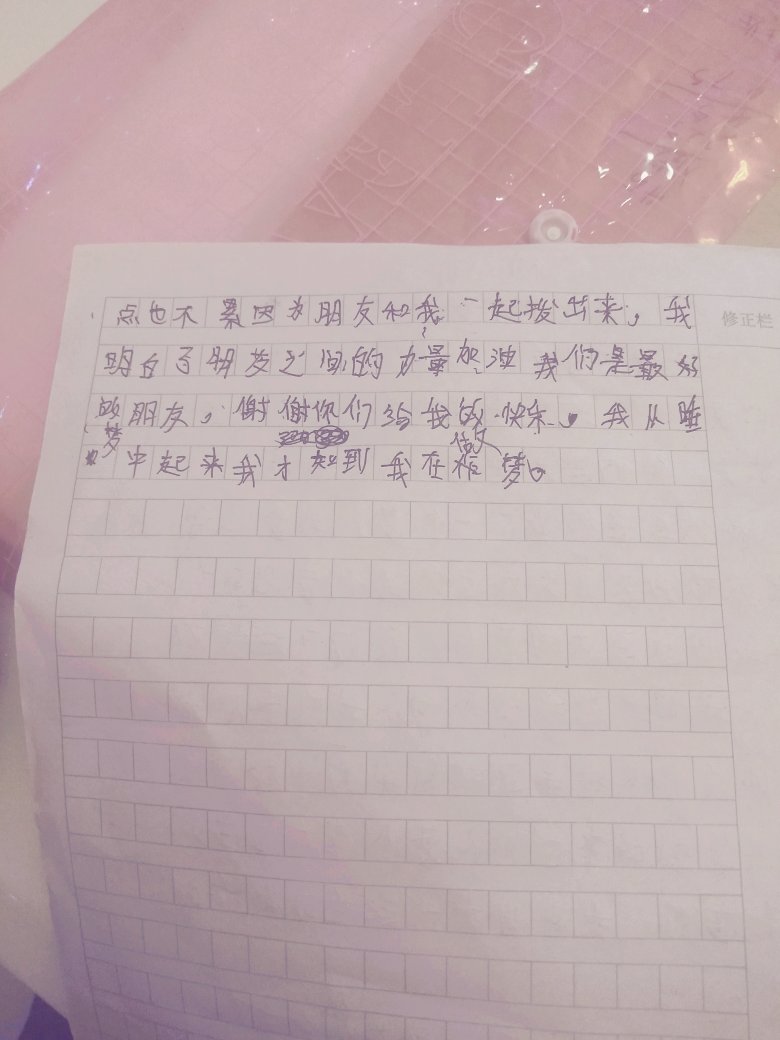 点也不累因为朋友和我一起拨出来，我
修正栏
明白了朋友之间的力量加油我们是最好
的朋友，谢谢你们给我的快乐。我从睡
梦中起来我才起到我在做梦。